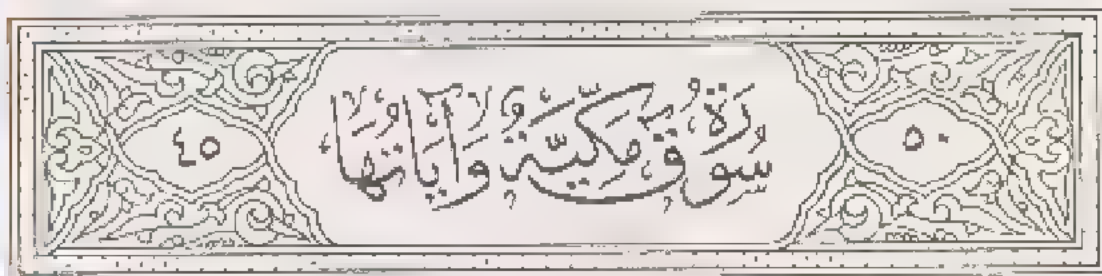 ٥٠
سُورَةُ ق مَكِّيَّةٌ وَآيَاتُهَا
٤٥